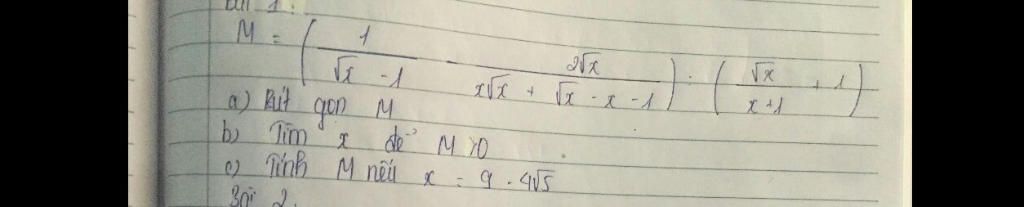 Bài 1:
M = ( 1/(√x - 1) - 2√x/(x√x + √x - x - 1) ) : ( √x/(x+1) + 1 )
a) Rút gọn M
b) Tìm x để M > 0
c) Tính M nếu x = 9 - 4√5
Bài 2: